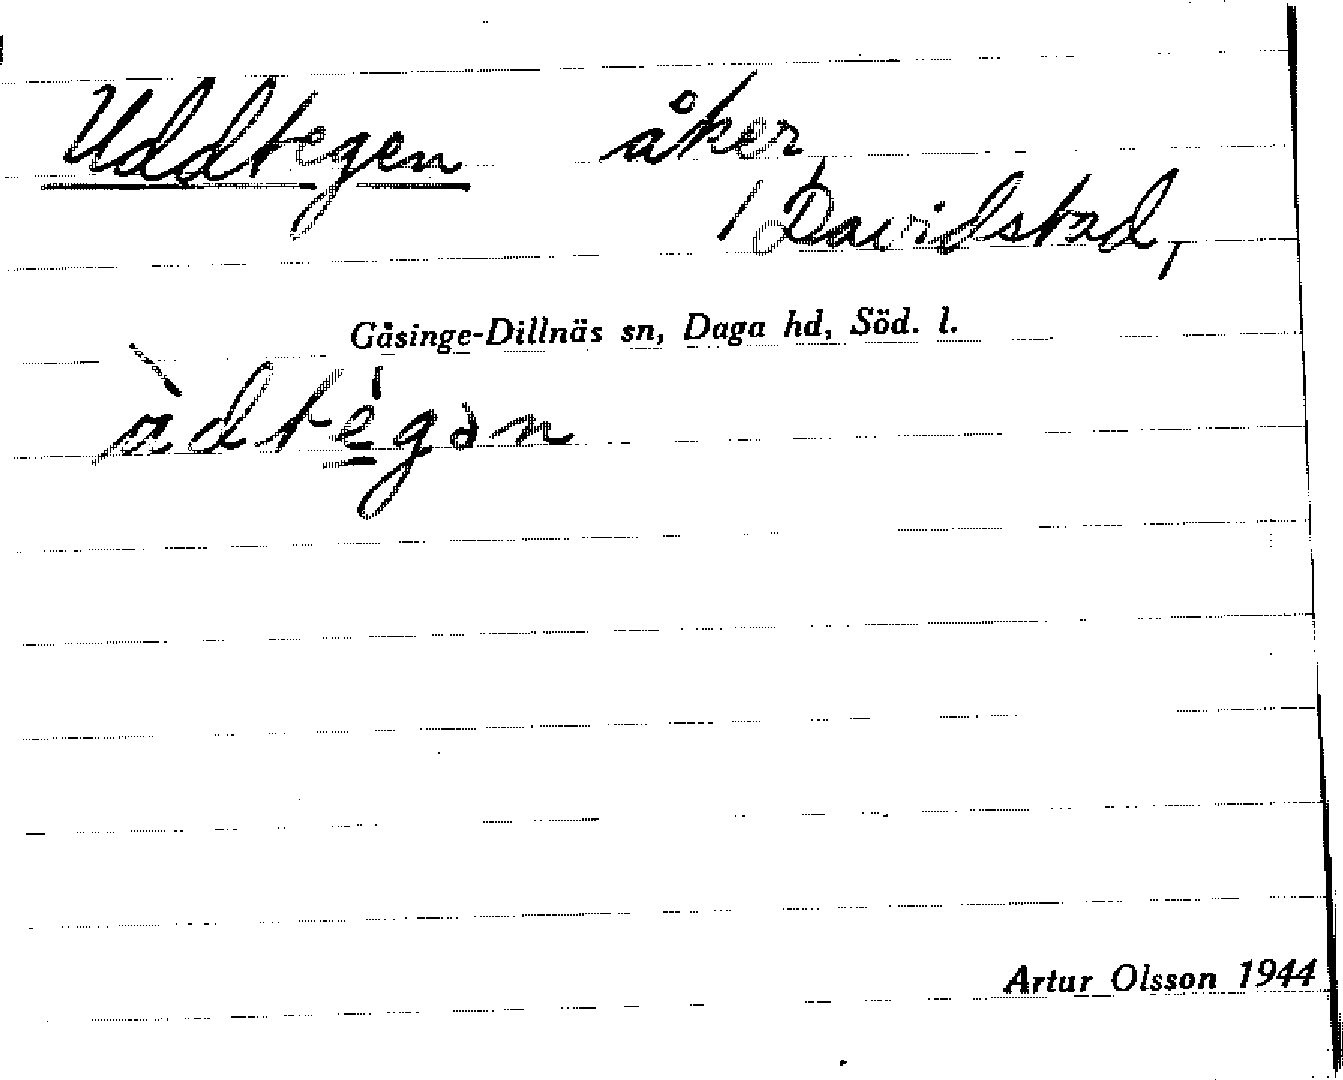 Uddtegen åker
/ Davidstad,
Gåsinge-Dillnäs sn, Daga hd, Söd. l.
Artur Olsson 1944